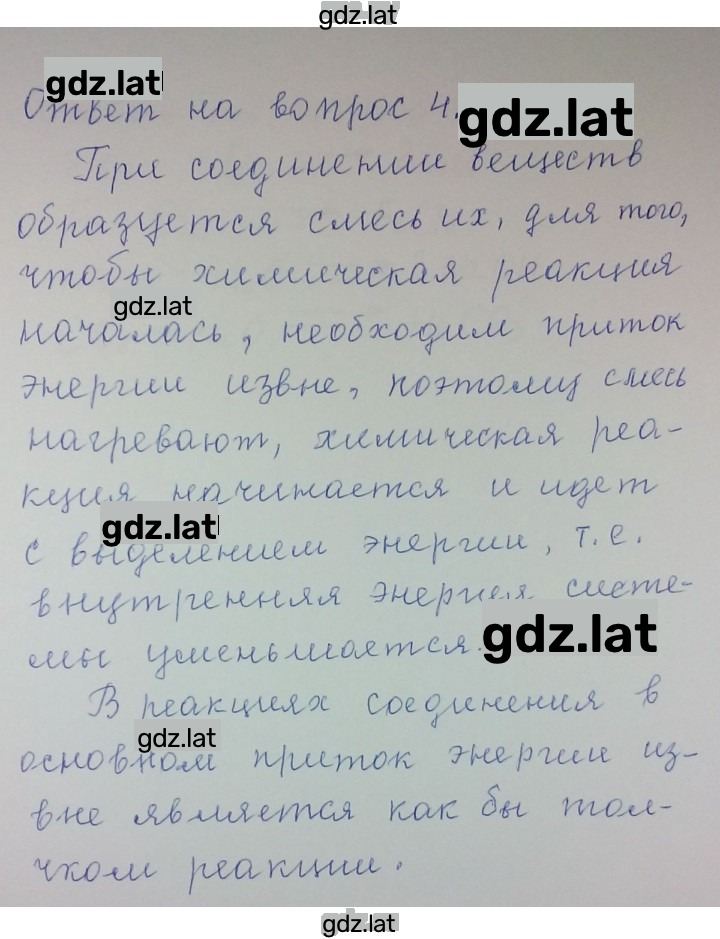 gdz.lat
gdz.lat
Ответ на вопрос 4.
gdz.lat
При соединении веществ
образуется смесь их, для того,
чтобы химическая реакция
gdz.lat
началась, необходим приток
энергии извне, поэтому смесь
нагревают, химическая реа-
кция начинается и идет
gdz.lat
с выделением энергии, т.е.
внутренняя энергия систе-
мы уменьшается.
gdz.lat
В реакциях соединения в
gdz.lat
основном приток энергии из-
вне является как бы тол-
чком реакции.
gdz.lat